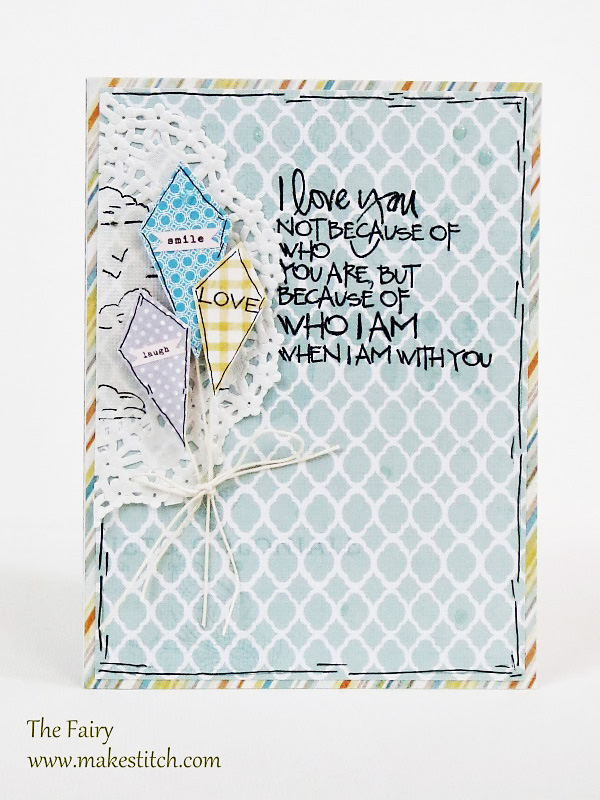 smile
LOVE
laugh
I love you
NOT BECAUSE OF
WHO
YOU ARE, BUT
BECAUSE OF
WHO I AM
WHEN I AM WITH YOU
The Fairy
www.makestitch.com